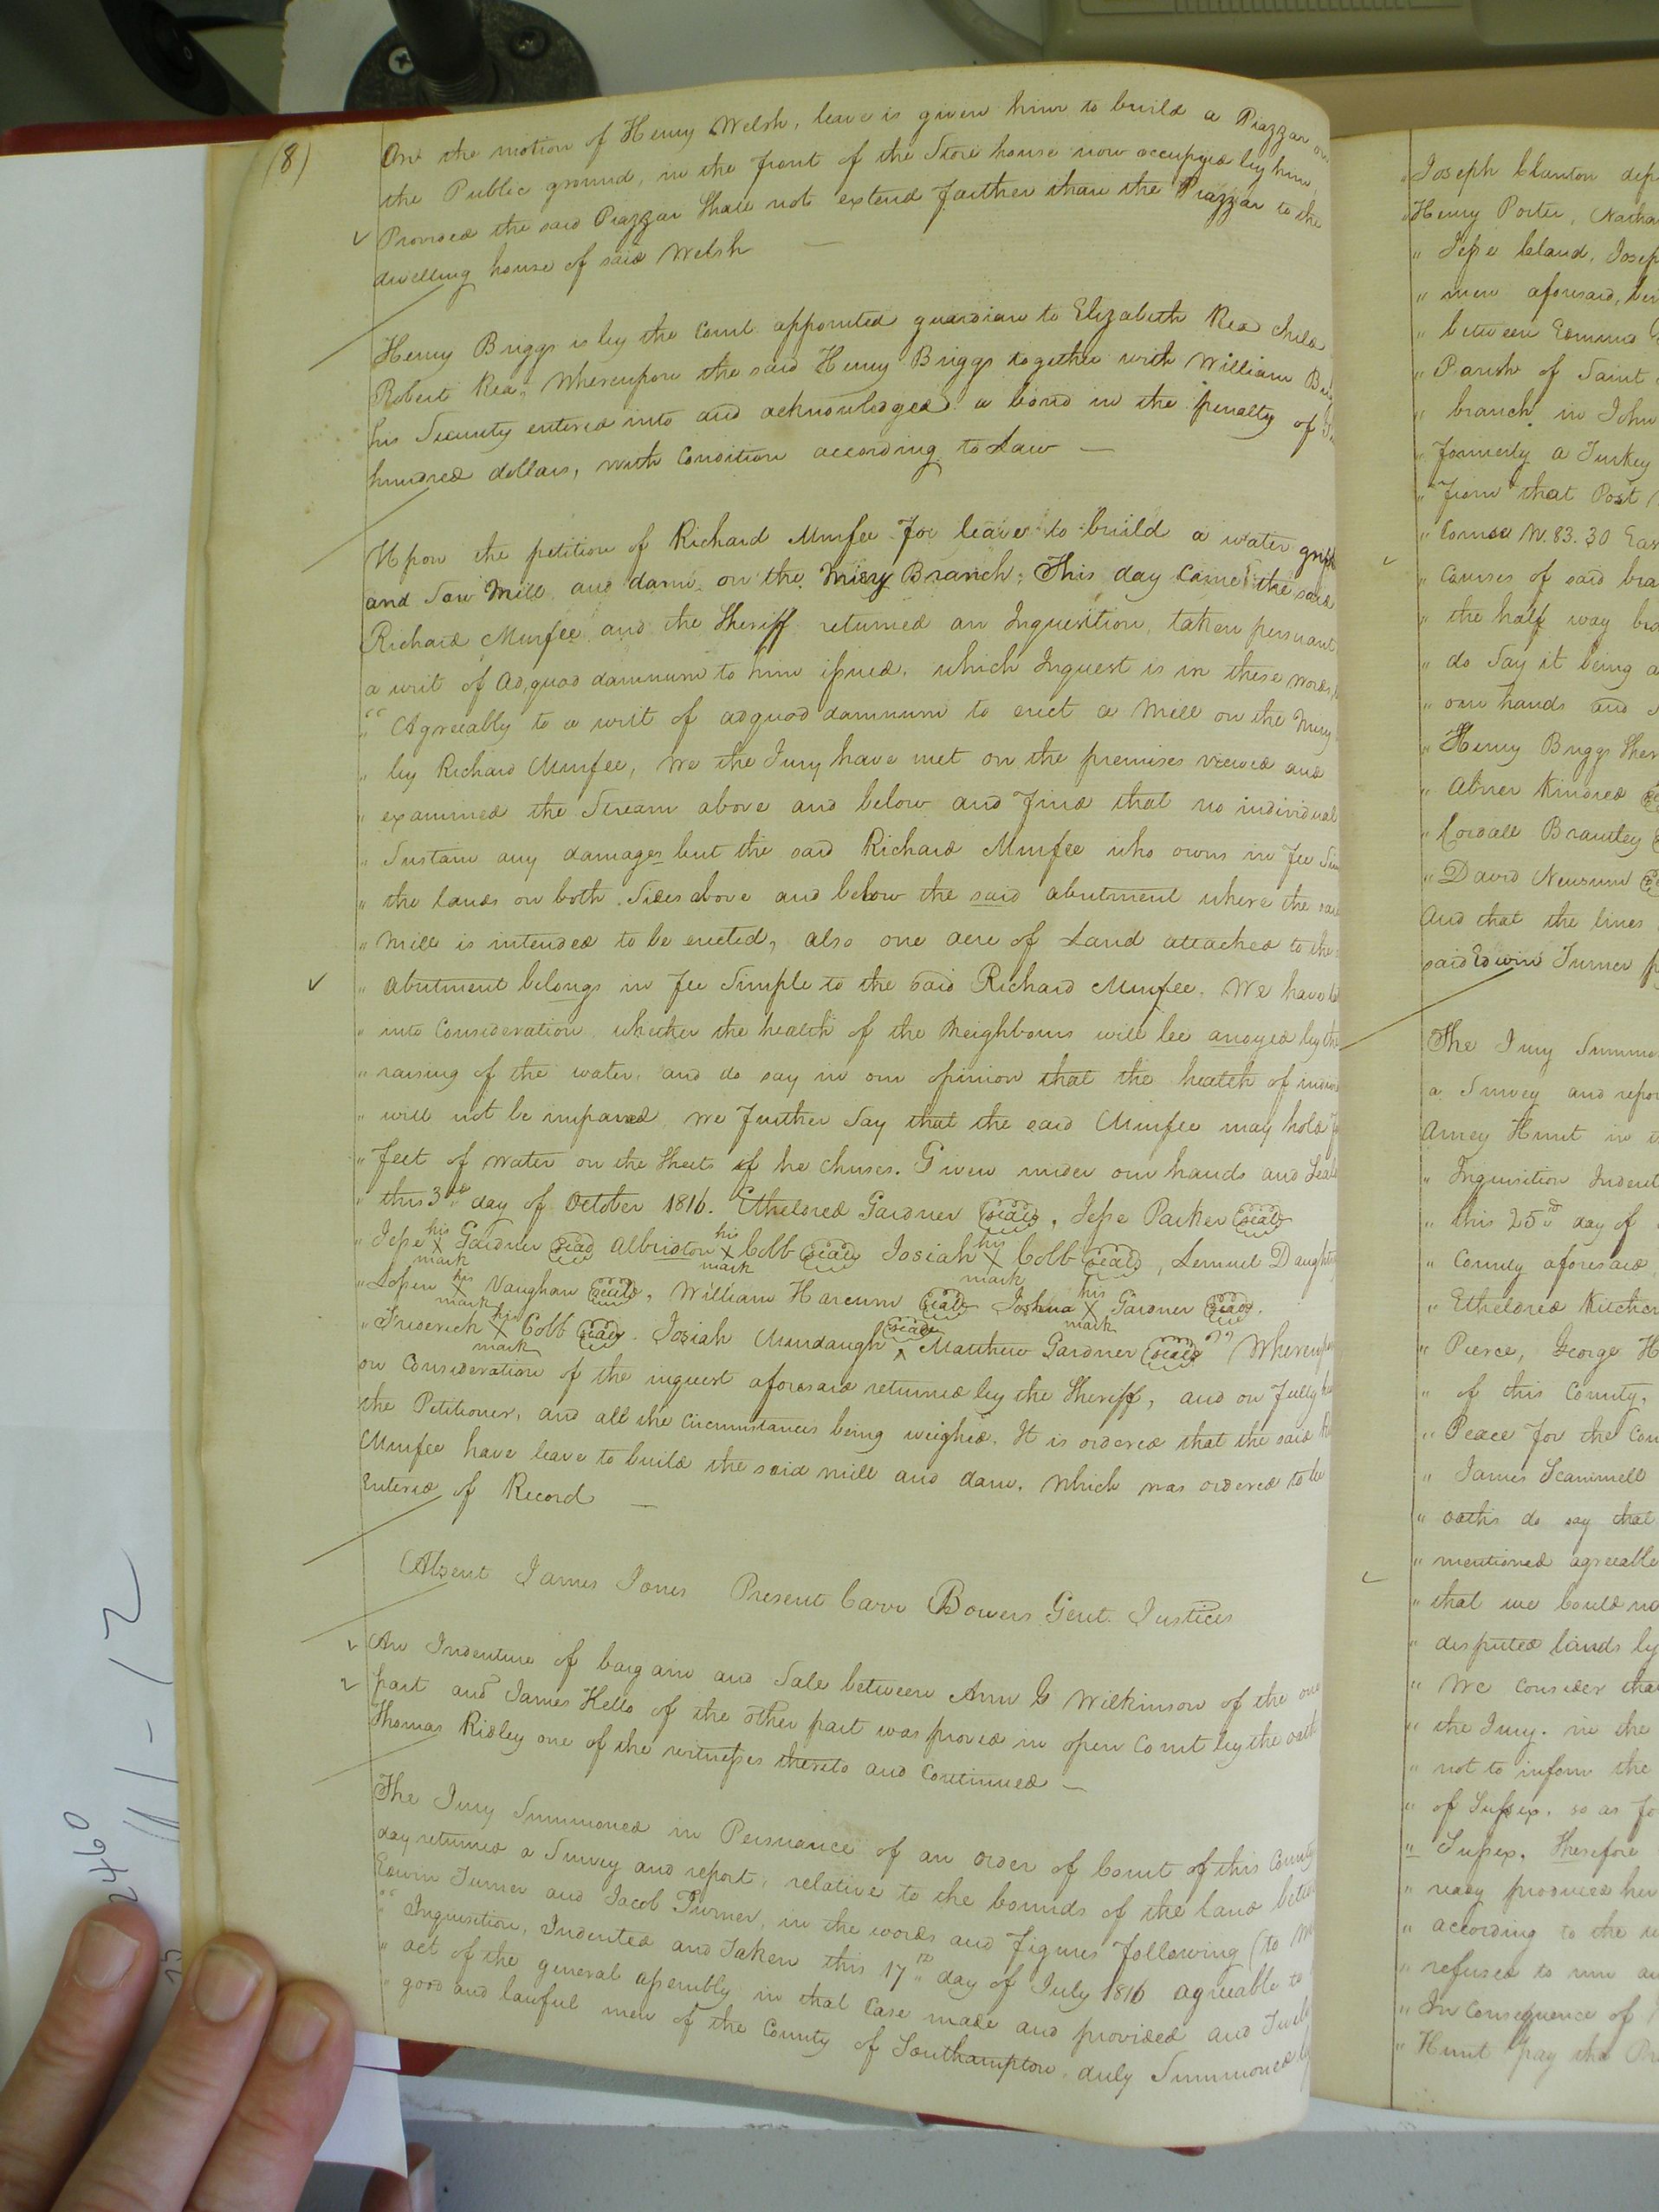 (8)
On the motion of Henry Welsh, leave is given him to build a Piazzar on
the Public ground, in the front of the Store house now occupyed by him,
Provided the said Piazzar Shall not extend farther than the Piazzar to the
dwelling house of said Welsh —
Henry Briggs is by the Court appointed guardian to Elizabeth Rea child
Robert Rea, Whereupon the said Henry Briggs together with William
his Security entered into and acknowledged a bond in the penalty of
hundred dollars, with Condition according to Law —
Upon the petition of Richard Murfee for leave to build a water grist
and Saw Mill and dam on the Miery Branch; This day came the said
Richard Murfee and the Sheriff returned an Inquisition, taken persuant
a writ of ad,quod damnum to him issued, which Inquest is in these words,
“ Agreeably to a writ of adquod damnum to erect a Mill on the Miery
„ by Richard Murfee, We the Jury have met on the premises viewed and
„ examined the Stream above and below and find that no individual
„ Sustain any damages but the said Richard Murfee who owns in fee Sim
„ the lands on both Sides above and below the said abutment where the said
„ Mill is intended to be erected, also one acre of Land attached to the
„ abutment belongs in fee Simple to the said Richard Murfee. We have
„ into Consideration whether the health of the Neighbours will be anoyed by the
„ raising of the water, and do say in our opinion that the health of indivi
„ will not be impared. We further Say that the said Murfee may hold
„ feet of water on the Sheets if he chuses. Given under our hands and Seals
„ this 3rd day of October 1816. Etheldred Gardner (seal), Jesse Parker (seal)
„ Jesse his X mark Gardner (seal) Albriston his X mark Cobb (seal) Josiah his X mark Cobb (seal), Lemuel Daughtry
„ his X mark Vaughan (seal), William Harcum (seal) Joshua his X mark Gardner (seal).
„ Frederick his X mark Cobb (seal). Josiah Mundaugh (seal) ^ Matthew Gardner (seal)” Whereupon
on Consideration of the inquest aforesaid returned by the Sheriff, and on fully
the Petitioner, and all the Circumstances being weighed. It is ordered that the said
Murfee have leave to build the said mill and dam. Which was ordered to be
Entered of Record —
Absent James Jones Present Carr Bowers Gent. Justices
An Indenture of bargain and Sale between Ann G Wilkinson of the one
part and James Kello of the other part was proved in open Court by the oath
Thomas Ridley one of the witnesses thereto and Continued —
The Jury Summoned in Persuance of an order of Court of this County
day returned a Survey and report, relative to the bounds of the land
Edwin Turner and Jacob Turner, in the words and figures following (to
“ Inquisition, Indented and Taken this 17th day of July 1816 agreeable to
„ act of the general assembly in that Case made and provided and Twelve
„ good and lawful men of the County of Southampton duly Summoned
Joseph Clanton
Henry Porter,
„ Jesse Eland,
„ men aforesaid,
„ between Edmund
„ Parish of Saint
„ branch in John
„ formerly a Turkey
„ from that Post
„ Course N. 83. 30 East
„ Courses of said
„ the half way
„ do Say it being a
„ our hands and
„ Henry Briggs
„ Abner Kindred
„ Cordall Brantley
„ David Newsum
And that the lines
said Edwin Turner
The Jury
a Survey and
Amey Hunt in
„ Inquisition
„ this 25th day of
„ County aforesaid,
„ Etheldred Kitchen
„ Pierce, George
„ of this County,
„ Peace for the
„ James Scammell
„ oaths do say that
„ mentioned agreeable
„ that we Could
„ disputed lands by
„ We consider that
„ the Jury. in the
„ not to inform the
„ of Sussex. so as
„ Sussex. Therefore
„ ready produced her
„ according to the
„ refused to run
„ In Consequence of
„ Hunt pay the
2460
11-12